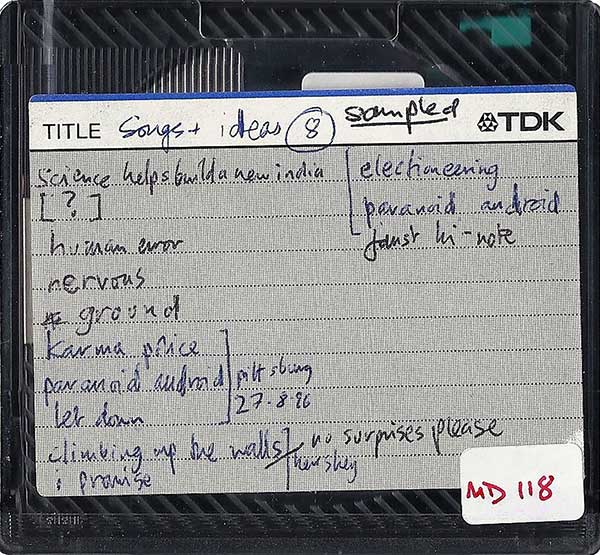 TITLE Songs + ideas 8 sampled TDK
Science helps build a new india
[ ? ]
human error
nervous
# ground
karma police
paranoid android
let down
pittsburg
27.8.96
climbing up the walls
i promise
hershey
no surprises please
electioneering
paranoid android
faust hi-note
MD 118